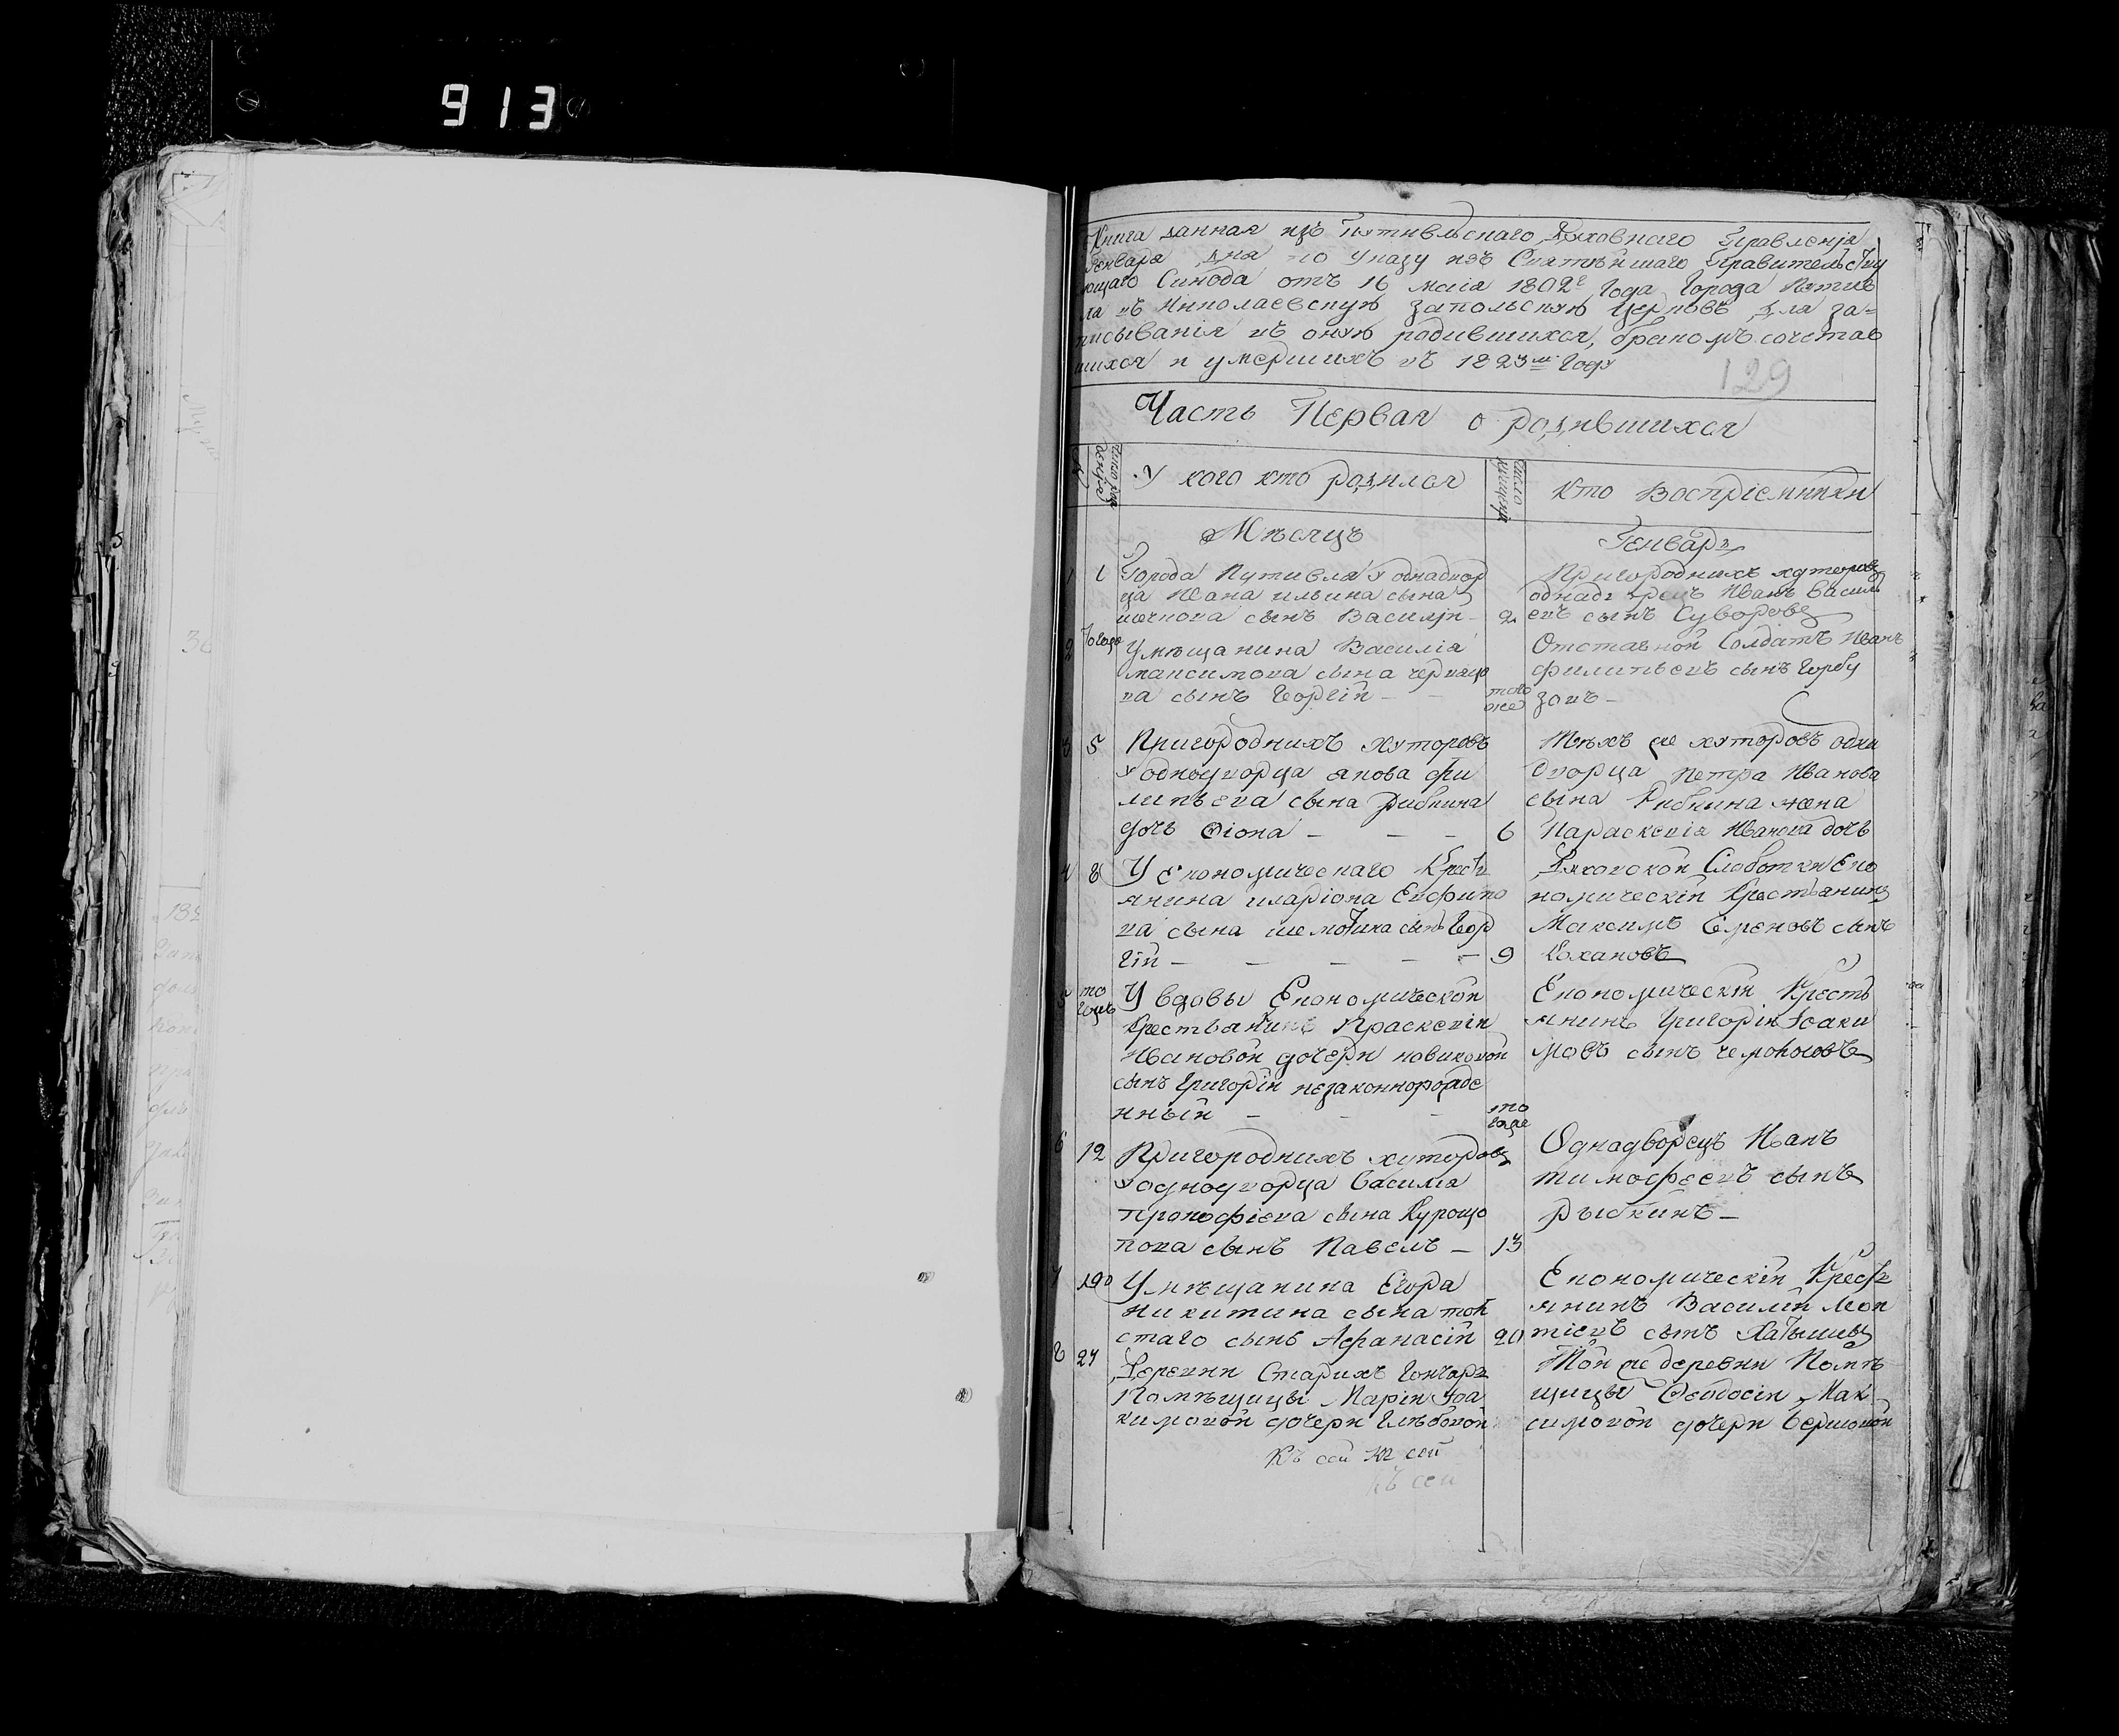 913
Книга данная изъ Путивльскаго Духовнаго Правленія
Генваря дня по указу изъ Святѣйшаго Правительству
ющаго Синода отъ 16 маія 1802г года города Путив
ла въ Николаевскую запольскую церковь для за-
писыванія въ оную родившихся, бракомъ сочетав
шихся и умершихъ въ 1823м году
129
Часть Первая о родившихся
У кого кто родился
Кто Воспріемники
Мѣсяцъ
Генварь
1 1 Города Путивля у однадвор
ца Ивана ильина сына
сынъ Василій -
2
Пригороднихъ хуторовъ
однадворецъ Иванъ Василь
евъ сынъ Суворовъ
2 того же У мѣщанина Василія
максимова сына
ва сынъ Георгій -
того же
Отставной Солдатъ Иванъ
филипьевъ сынъ Горбу
зовъ -
3 5 Пригороднихъ хуторовъ
у однодворца якова фи
липьева сына рибкина
дочь Фіона - - -
6
Тѣхъ же хуторовъ одна
дворца Петра Иванова
сына Рибкина жена
Параскевія Иванова дочь
4 8 У економическаго Крестъ
янина иларіона Евфимо
ва сына сынъ Геор
гій - - - - -
9
Духовской Слоботки Еко
номическій Крестьянинъ
Максимъ Семеновъ сынъ
Кохановъ
5 то гожъ У вдовы Економической
Праскевіи
Ивановой дочери новиковой
сынъ Григорій незаконнорожде
нный - - -
то гоже
Економическій Кресть
янинъ Григорій Іоаки
мовъ сынъ
6 12 Пригороднихъ хуторовъ
у однодворца Василія
прокофіева сына Курощо
пова сынъ Павелъ -
13
Однадворецъ Иванъ
тимофеевъ сынъ
рыбкинъ -
7 19 У мѣщанина Егора
никитина сына тол
стаго сынъ Афанасій
20
Економическій Кресть
янинъ Василій Леон
тіевъ сынъ
8 24 Деревни Старихъ Гончаръ
Помѣщицы Маріи Іоа
кимовой дочери Глѣбовой
Той же деревни Помѣ
щицы Феодосіи Мак
симовой дочери
Къ сей къ сей
къ сей